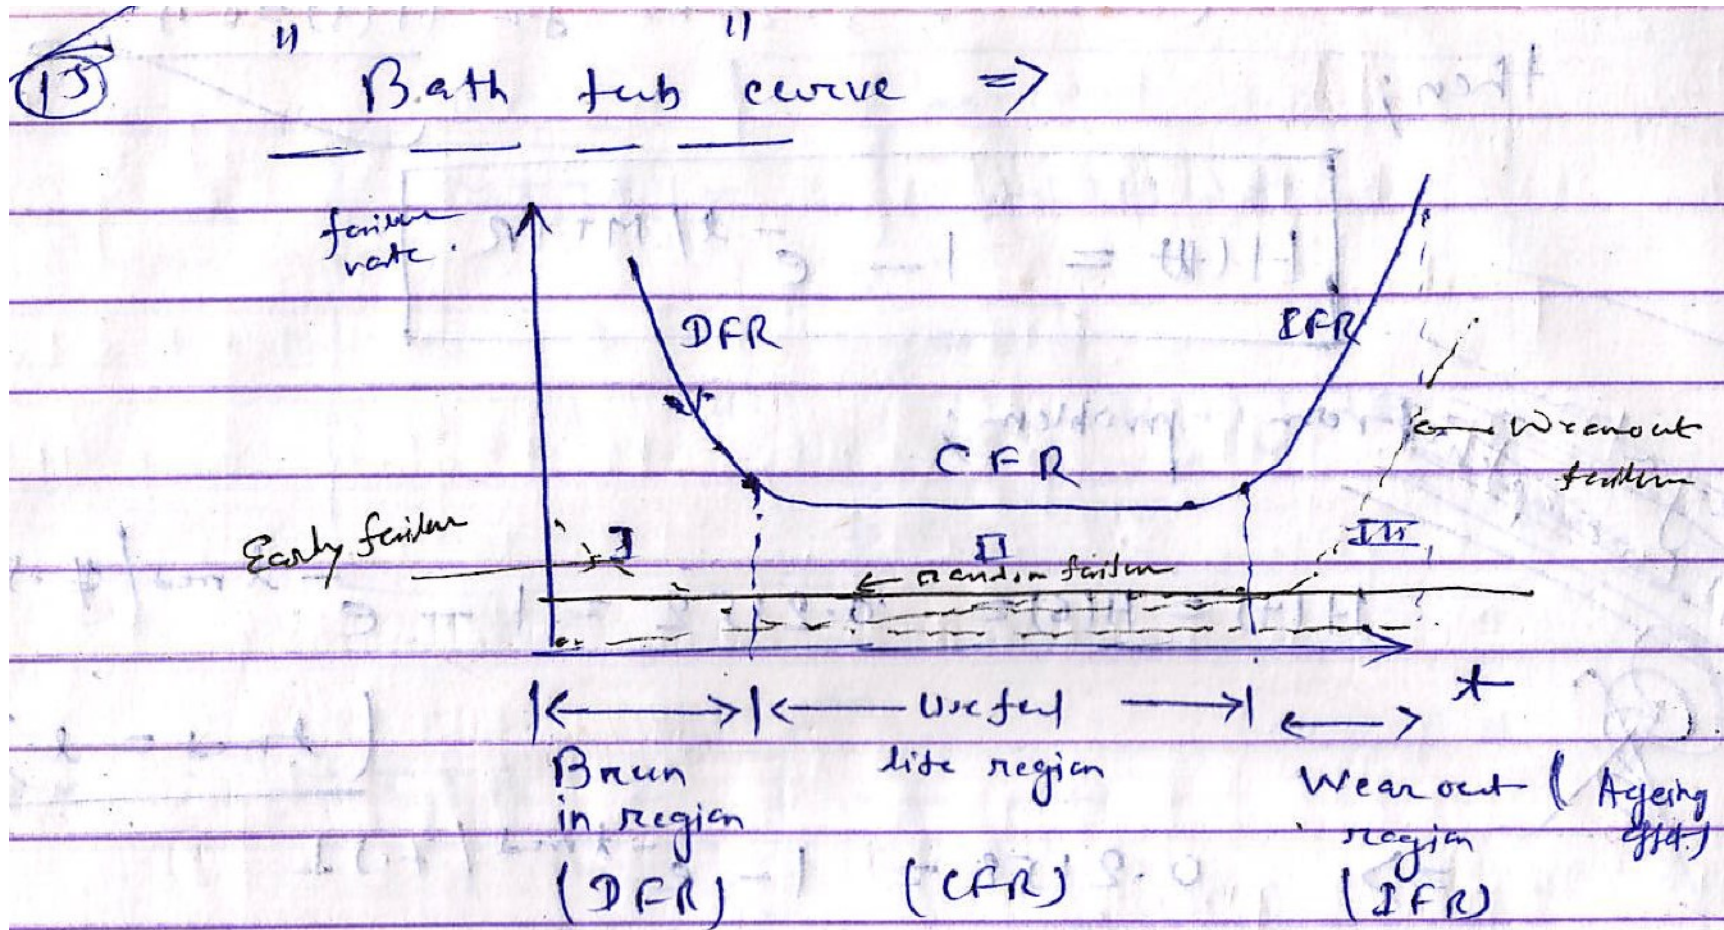 15
" Bath tub " curve =>
failure
rate.
DFR
IFR
CFR
Wearout
failure
Early failure
I
II
III
← random failure
t
Useful
life region
(CFR)
in region
(DFR)
Wear out ( Ageing
region effect)
(IFR)